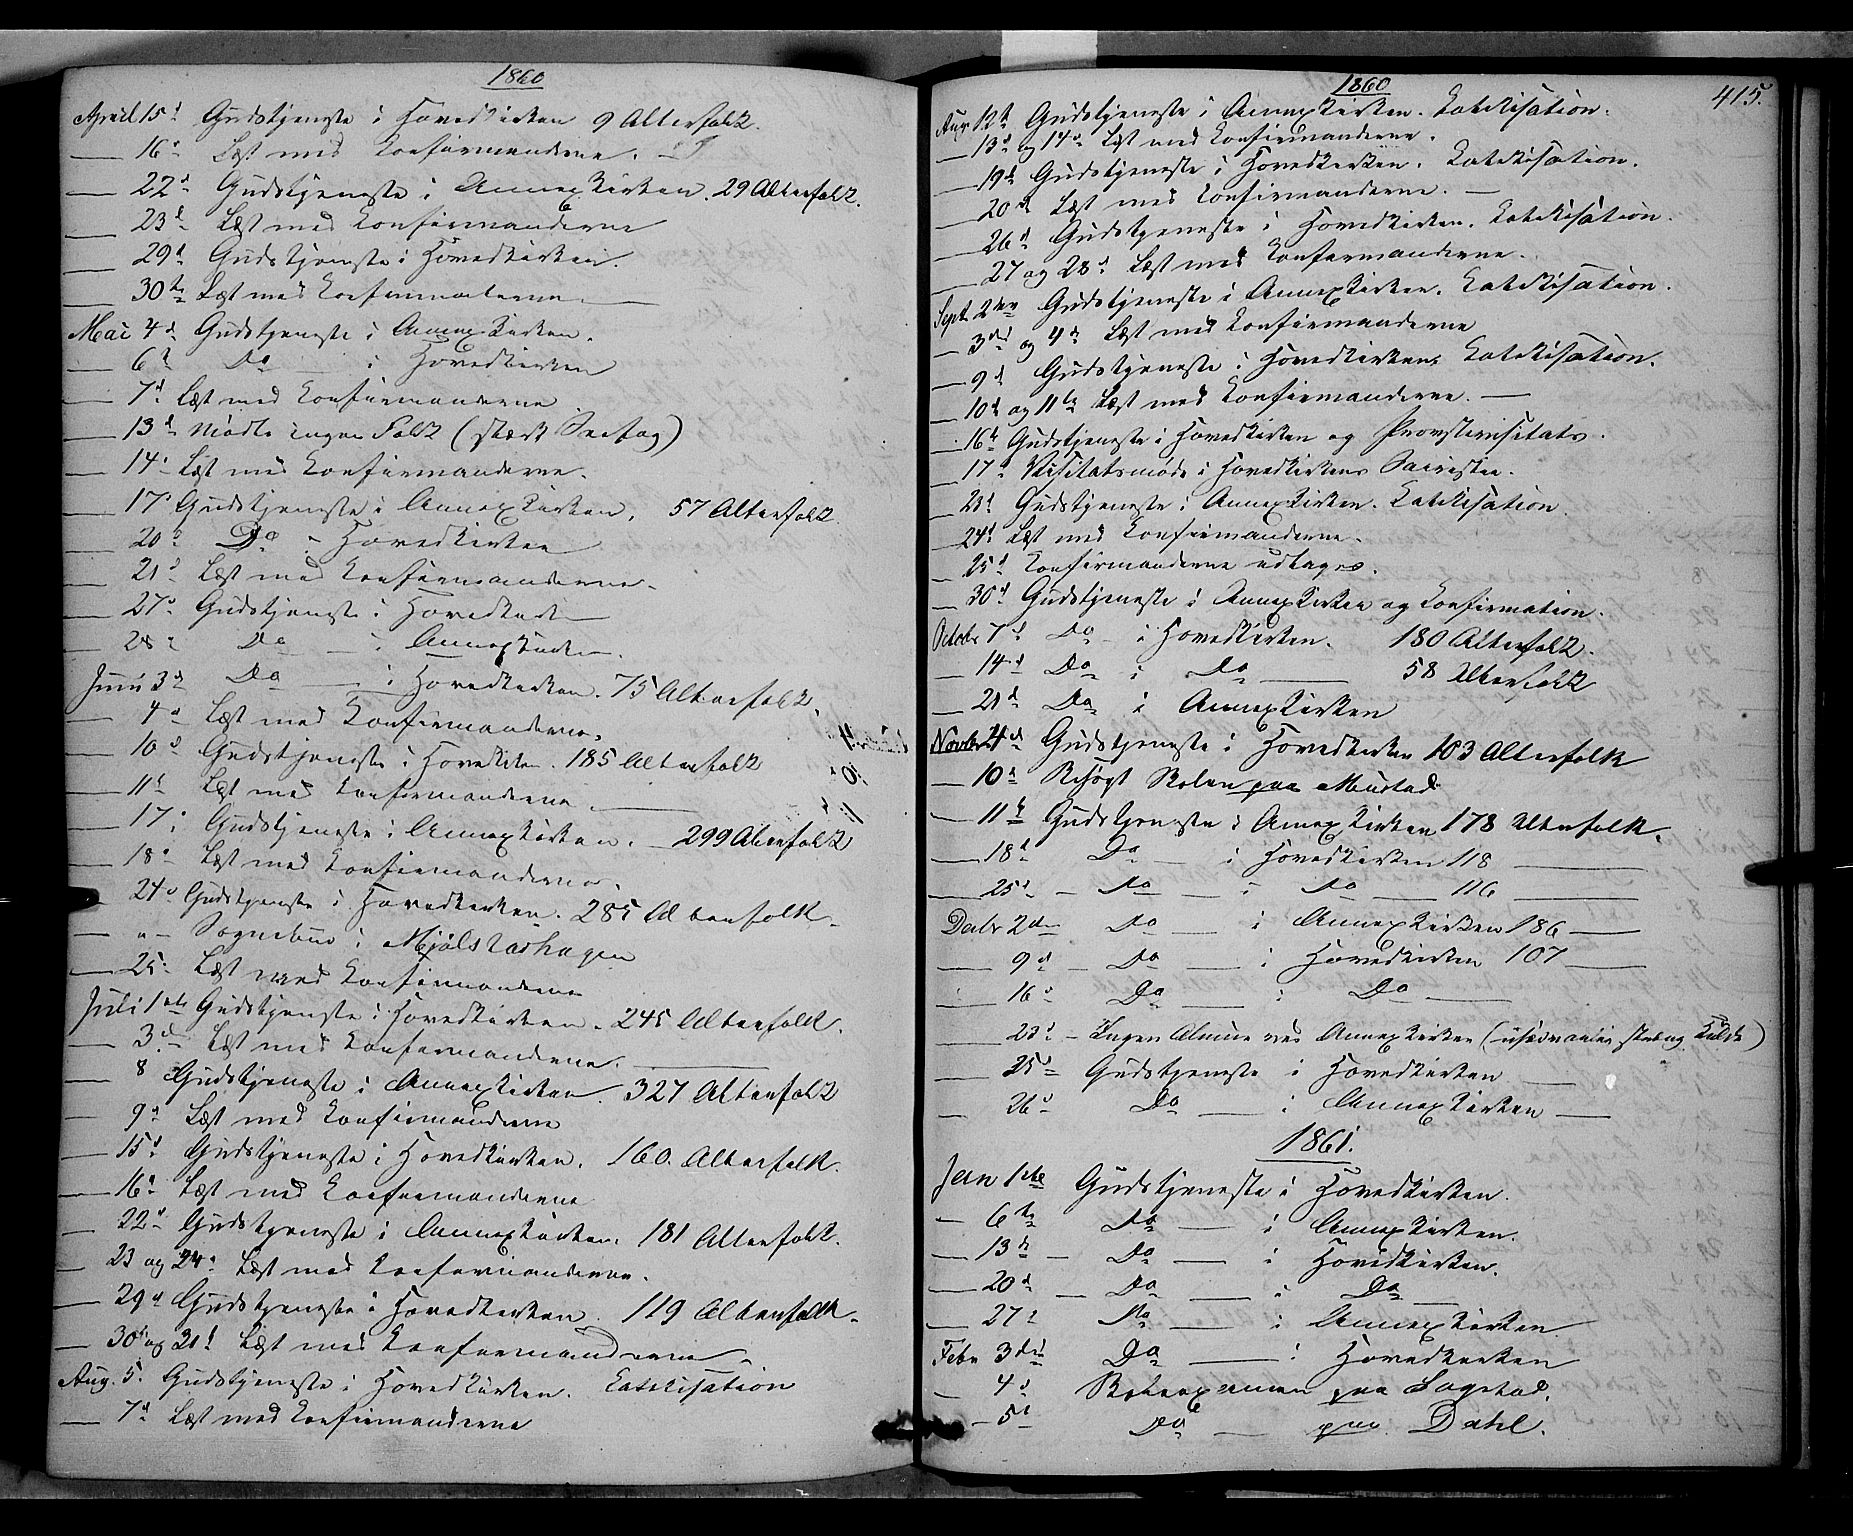 1860
April 15d Gudstjeneste i Hovedkirken 9 Altersfolk.
— 16d Læst med Konfirmanderne.
— 22d Gudstjeneste i Annexkirken. 29 Altersfolk.
— 23d Læst med Konfirmanderne
— 29d Gudstjeneste i Hovedkirken.
— 30te Læst med Konfirmanderne
Mai 4d Gudstjeneste i Annexkirken.
— 6t Do i Hovedkirken
— 7d Læst med Konfirmanderne
— 13d Mødte ingen Folk (stærk Snefog)
— 14d Læst med Konfirmanderne.
— 17d Gudstjeneste i Annexkirken. 57 Altersfolk
— 20d Do i Hovedkirken
— 21d Læst med Konfirmanderne.
— 27d Gudstjeneste i Hovedkirken
— 28d Do — i Annexkirken.
Juni 3d Do — i Hovedkirken. 75 Altersfolk.
— 4d Læst med Konfirmanderne.
— 10d Gudstjeneste i Hovedkirken. 185 Altersfolk
— 11t Læst med Konfirmanderne.
— 17d Gudstjeneste i Annexkirken. — 299 Altersfolk
— 18d Læst med Konfirmanderne.
— 24d Gudstjeneste i Hovedkirken. 285 Altersfolk.
— " — Sognebud i Mjølstadhagen
— 25d Læst med Konfirmanderne
Juli 1ste Gudstjeneste i Hovedkirken. 245 Altersfolk.
— 3d Læst med Konfirmanderne.
— 8 Gudstjeneste i Annexkirken. 327 Altersfolk
— 9d Læst med Konfirmanderne
— 15d Gudstjeneste i Hovedkirken. 160. Altersfolk.
— 16d Læst med Konfirmanderne
— 22d Gudstjeneste i Annexkirken. 181 Altersfolk.
— 23 og 24d Læst med Konfirmanderne.
— 29d Gudstjeneste i Hovedkirken. 119 Altersfolk.
— 30d og 31d Læst med Konfirmanderne
Aug. 5. Gudstjeneste i Hovedkirken. Katekisation
— 7d Læst med Konfirmanderne
1860
415.
Aug 12t Gudstjeneste i Annexkirken. Katekisation.
— 13d og 14d Læst med Konfirmanderne.
— 19d Gudstjeneste i Hovedkirken. Katekisation.
— 20d Læst med Konfirmanderne. —
— 26d Gudstjeneste i Hovedkirken. Katekisation.
— 27 og 28d Læst med Konfirmanderne.
Sept 2den Gudstjeneste i Annexkirken. Katekisation.
— 3die og 4d Læst med Konfirmanderne
— 9d Gudstjeneste i Hovedkirken. Katekisation.
— 10d og 11te Læst med Konfirmanderne. —
— 16d Gudstjeneste i Hovedkirken og Provstevisitats.
— 17d Visitatsmøde i Hovedkirkens Sacristie.
— 23d Gudstjeneste i Annexkirken. Katekisation.
— 24d Læst med Konfirmanderne.
— 25d Konfirmanderne udtages.
— 30d Gudstjeneste i Annexkirken og Konfirmation.
Octobr 7d Do — i Hovedkirken. 180 Altersfolk.
— 14d Do i Do — 58 Altersfolk
— 21d Do i Annexkirken
Novbr 4d Gudstjeneste i Hovedkirken 103 Altersfolk
— 10d Besøgt Skolen paa Mustad
— 11t Gudstjeneste i Annexkirken 178 Altersfolk.
— 18d Do — i Hovedkirken 118 —
— 25d — Do — i Do — 116 —
Decbr 2den Do — i Annexkirken 186 —
— 9d — Do — i Hovedkirken 107 —
— 16d Do — i Do —
23d — Ingen Almue ved Annexkirken (usædvanlig streng Kulde)
— 25d Gudstjeneste i Hovedkirken —
— 26d Do — i Annexkirken —
1861.
Jan 1ste Gudstjeneste i Hovedkirken.
— 6te Do — i Annexkirken.
— 13d — Do — i Hovedkirken.
— 20d — Do — i Do —
— 27d Do — i Annexkirken
Febr 3die Do — i Hovedkirken
— 4d Skoleexamen paa Sogstad.
— 5t Do — paa Dahl.